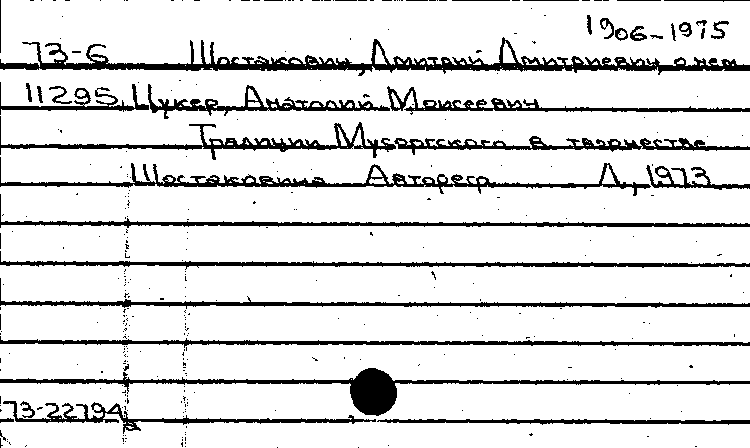 1906-1975
73-6 Шостакович, Дмитрий Дмитриевич, о нем
11295 Цукер, Анатолий Моисеевич
Традиции Мусоргского в творчестве
Шостаковича Автореф. Л., 1973
73-22794